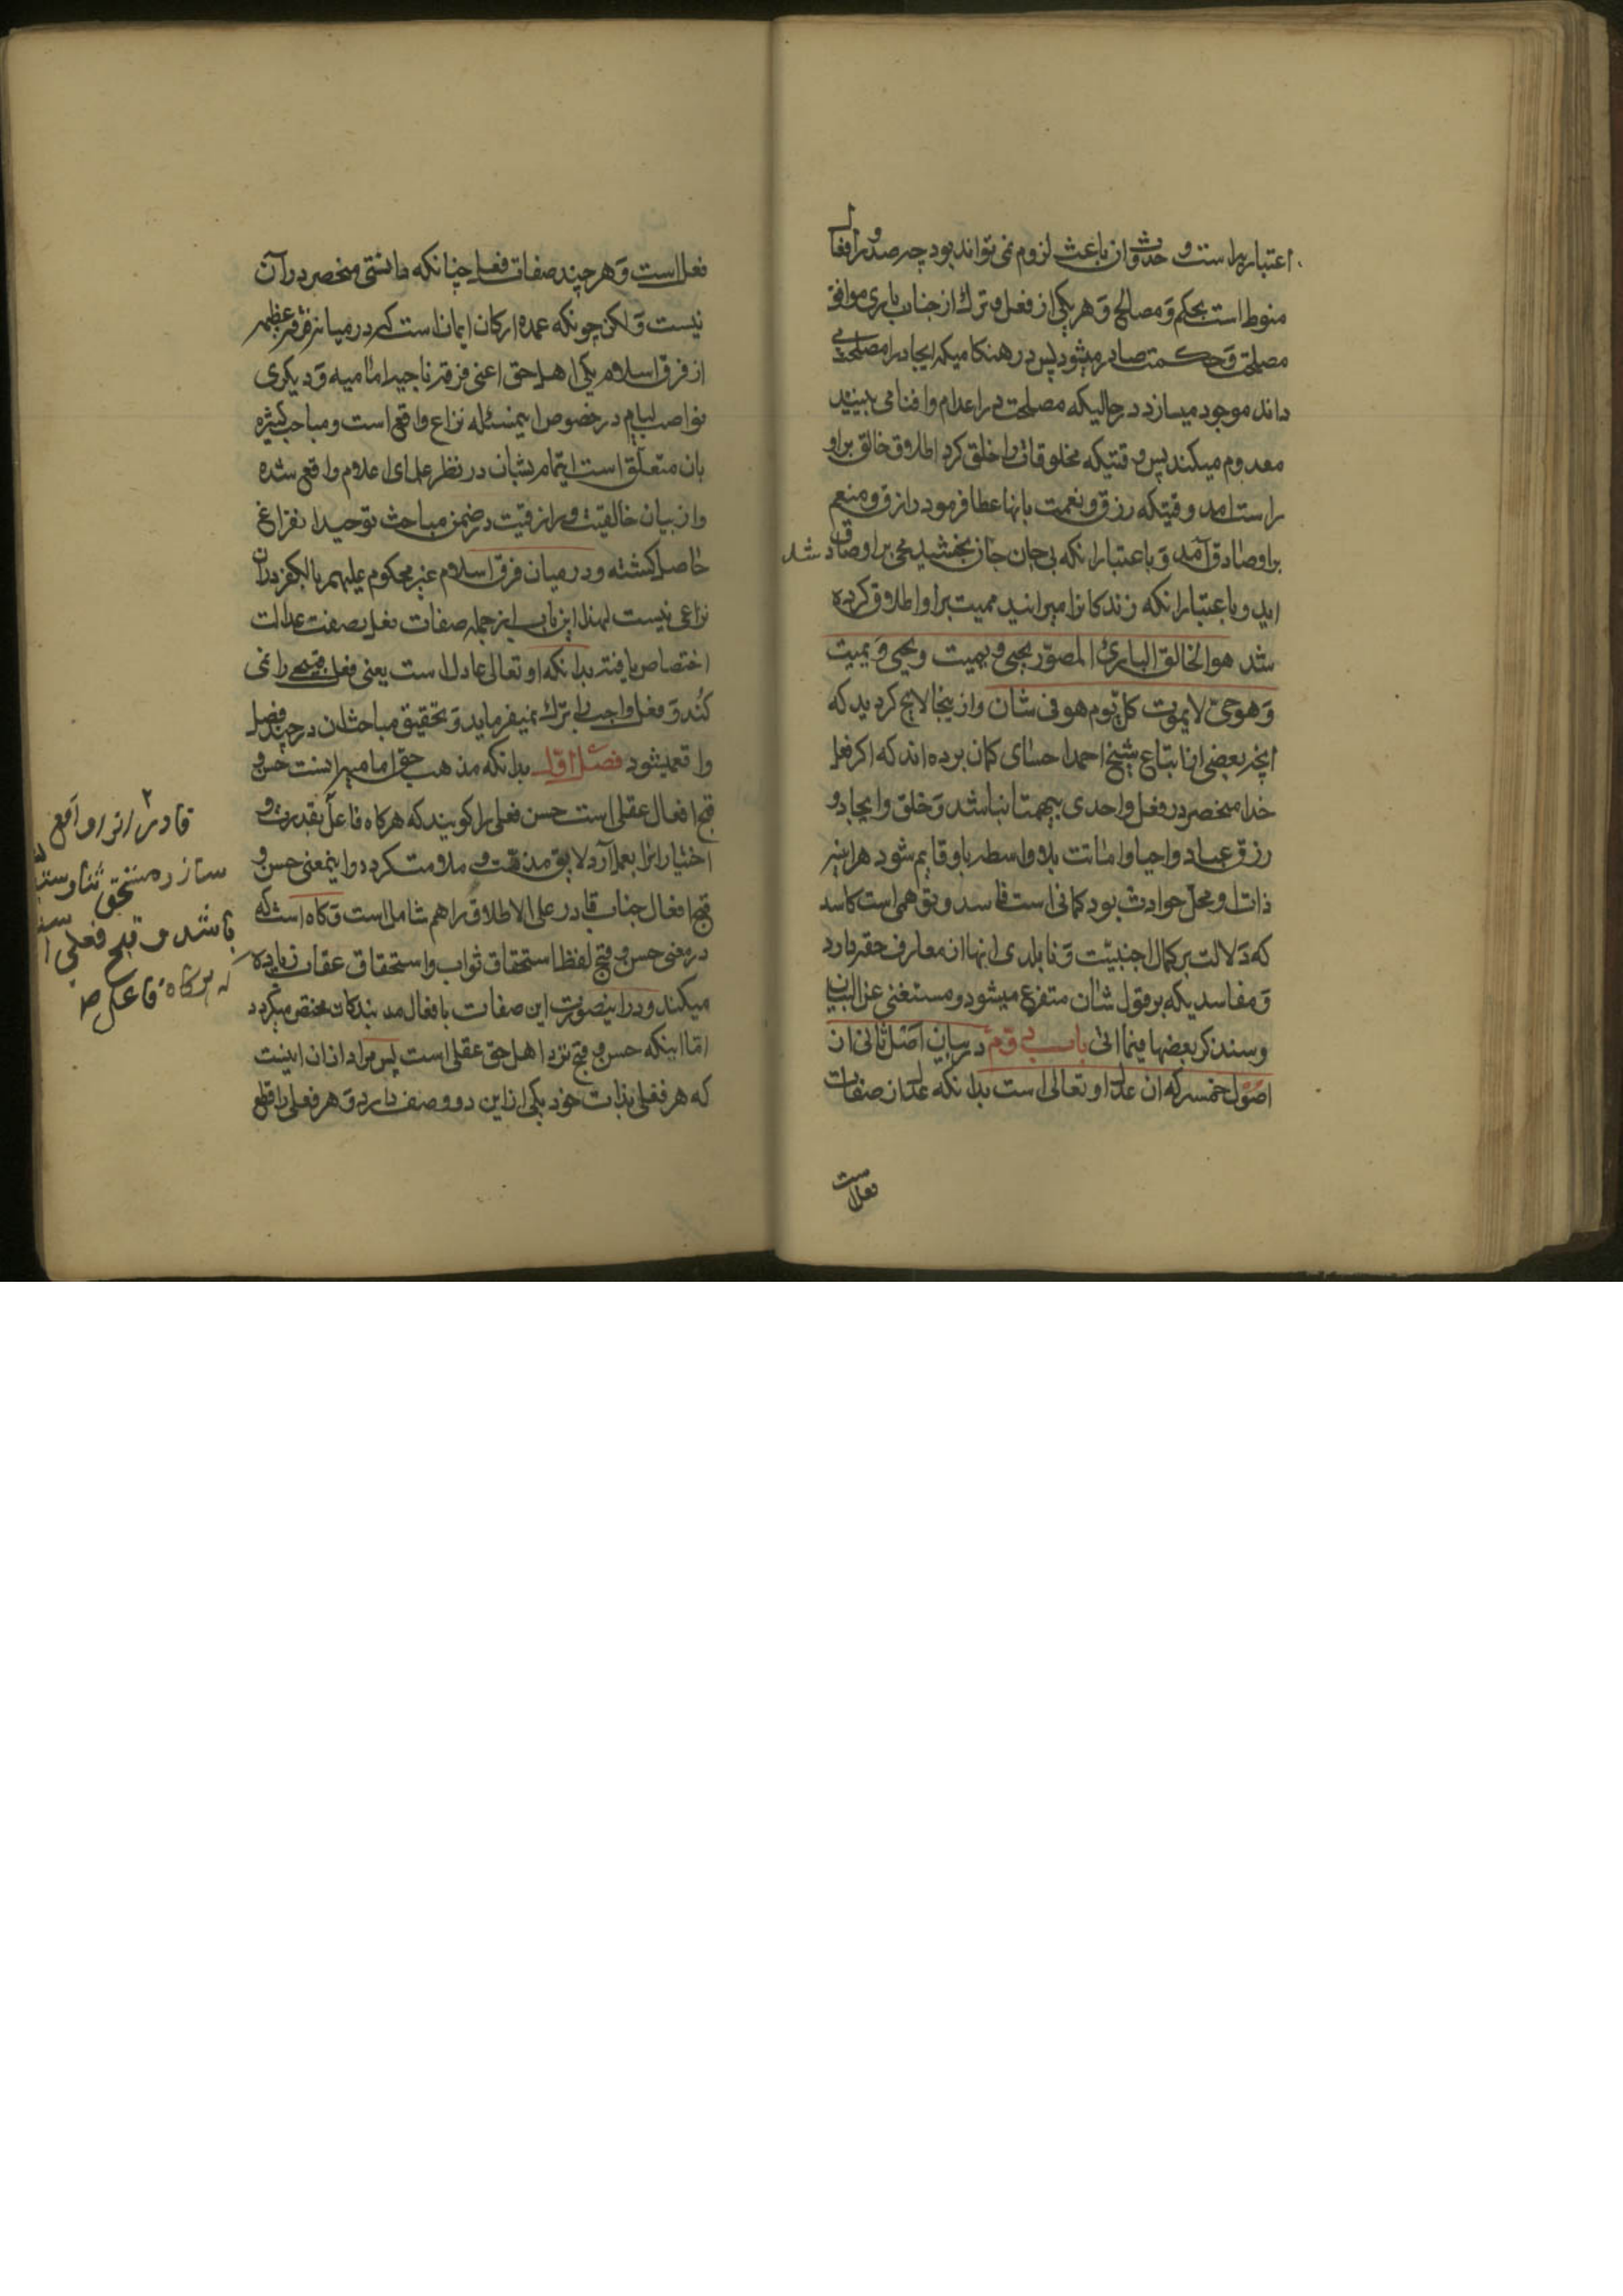 اعتباریه است و حدوث ان باعث لزوم نمی تواند بود چه صدور افعال
منوط است بحکم و مصالح و هر یکی از فعل و ترک از جناب باری موافق
مصلحت و حکمت صادر میشود پس در هنکامیکه ایجاد را مصلحت
داند موجود میسازد در حالیکه مصلحت در اعدام و افنا می بیند
معدوم میکند پس وقتیکه مخلوقات را خلق کرد اطلاق خالق بر او
راست امد و قتیکه رزق و نعمت بانها عطا فرمود رازق و منعم
بر او صادق آمد و باعتبار انکه بی جان جان بخشید محیی بر او صادق شد
اید و باعتبار انکه زندکانرا میرانید ممیت بر او اطلاق کرده
شد هو الخالق الباری المصور یحیی و یمیت و یحیی و یمیت
و هو حی لا یموت کل یوم هو فی شان و از ینجا لایح کردید که
انچه بعضی از اتباع شیخ احمد احسای کمان برده اند که اکر فعل
خدا منحصر در فعل واحدی بیهمتا نباشد و خلق و ایجاد و
رزق عباد و احیا و امانت بلا واسطه باو قایم شود هر اینه
ذات او محل حوادث بود کمانی است فاسد و توهمی است کاسد
که دلالت بر کمال اجنبیت و نابلدی انها از معارف حقه دارد
و مفاسدیکه بر قول شان متفرع میشود و مستغنی عن البیان
و سنذکر بعضها فیما اتی باب دوم در بیان اصل ثانی از
اصول خمسه که ان عدل او تعالی است بدانکه عدل از صفات
فعل است
فعل است و هر چند صفات فعل چنانکه دانستی منحصر در آن
نیست و لکن چونکه عمده ارکان ایمان است که در میانه فرقه عظیمه
از فرق اسلام یکی اهل حق اعنی فرقه ناجیه امامیه و دیکری
نواصب لیام در خصوص اینمسئله نزاع واقع است و مباحث کثیره
بان متعلق است اهتمام بشان در نظر علمای اعلام واقع شده
و از بیان خالقیت و رازقیت در ضمن مباحث توحید فراغ
حاصل کشته و در میان فرق اسلام غیر محکوم علیهم بالکفر دران
نزاعی نیست لهذا این باب از جمله صفات فعل بصفت عدالت
اختصاص یافته بدانکه او تعالی عادل است یعنی فعل قبیح را نمی
کند و فعل واجب را ترک نمیفرماید و تحقیق مباحث ان در چند فصل
واقع میشود فصل اول بدانکه مذهب حق امامیه اینست حسن و
قبح افعال عقلی است حسن فعلی را کویند که هرکاه فاعل بقدرت و
اختیار انرا بعمل آرد لایق مذمت و ملامت نکردد و اینمعنی حسن و
قبح افعال جناب قادر علی الاطلاق را هم شامل است و کاه است که
در معنی حسن و قبح لفظ استحقاق ثواب و استحقاق عقاب زیاده
میکنند و در اینصورت این صفات بافعال بندکان مختص میکردد
اما اینکه حسن و قبح نزد اهل حق عقلی است پس مراد از ان اینست
که هر فعلی بذات خود یکی از این دو وصف دارد و هر فعلی را قطع
قادر انرا واقع
سازد مستحق ثنا و ستایش
باشد و قبح فعلی است
که هرکاه فاعل